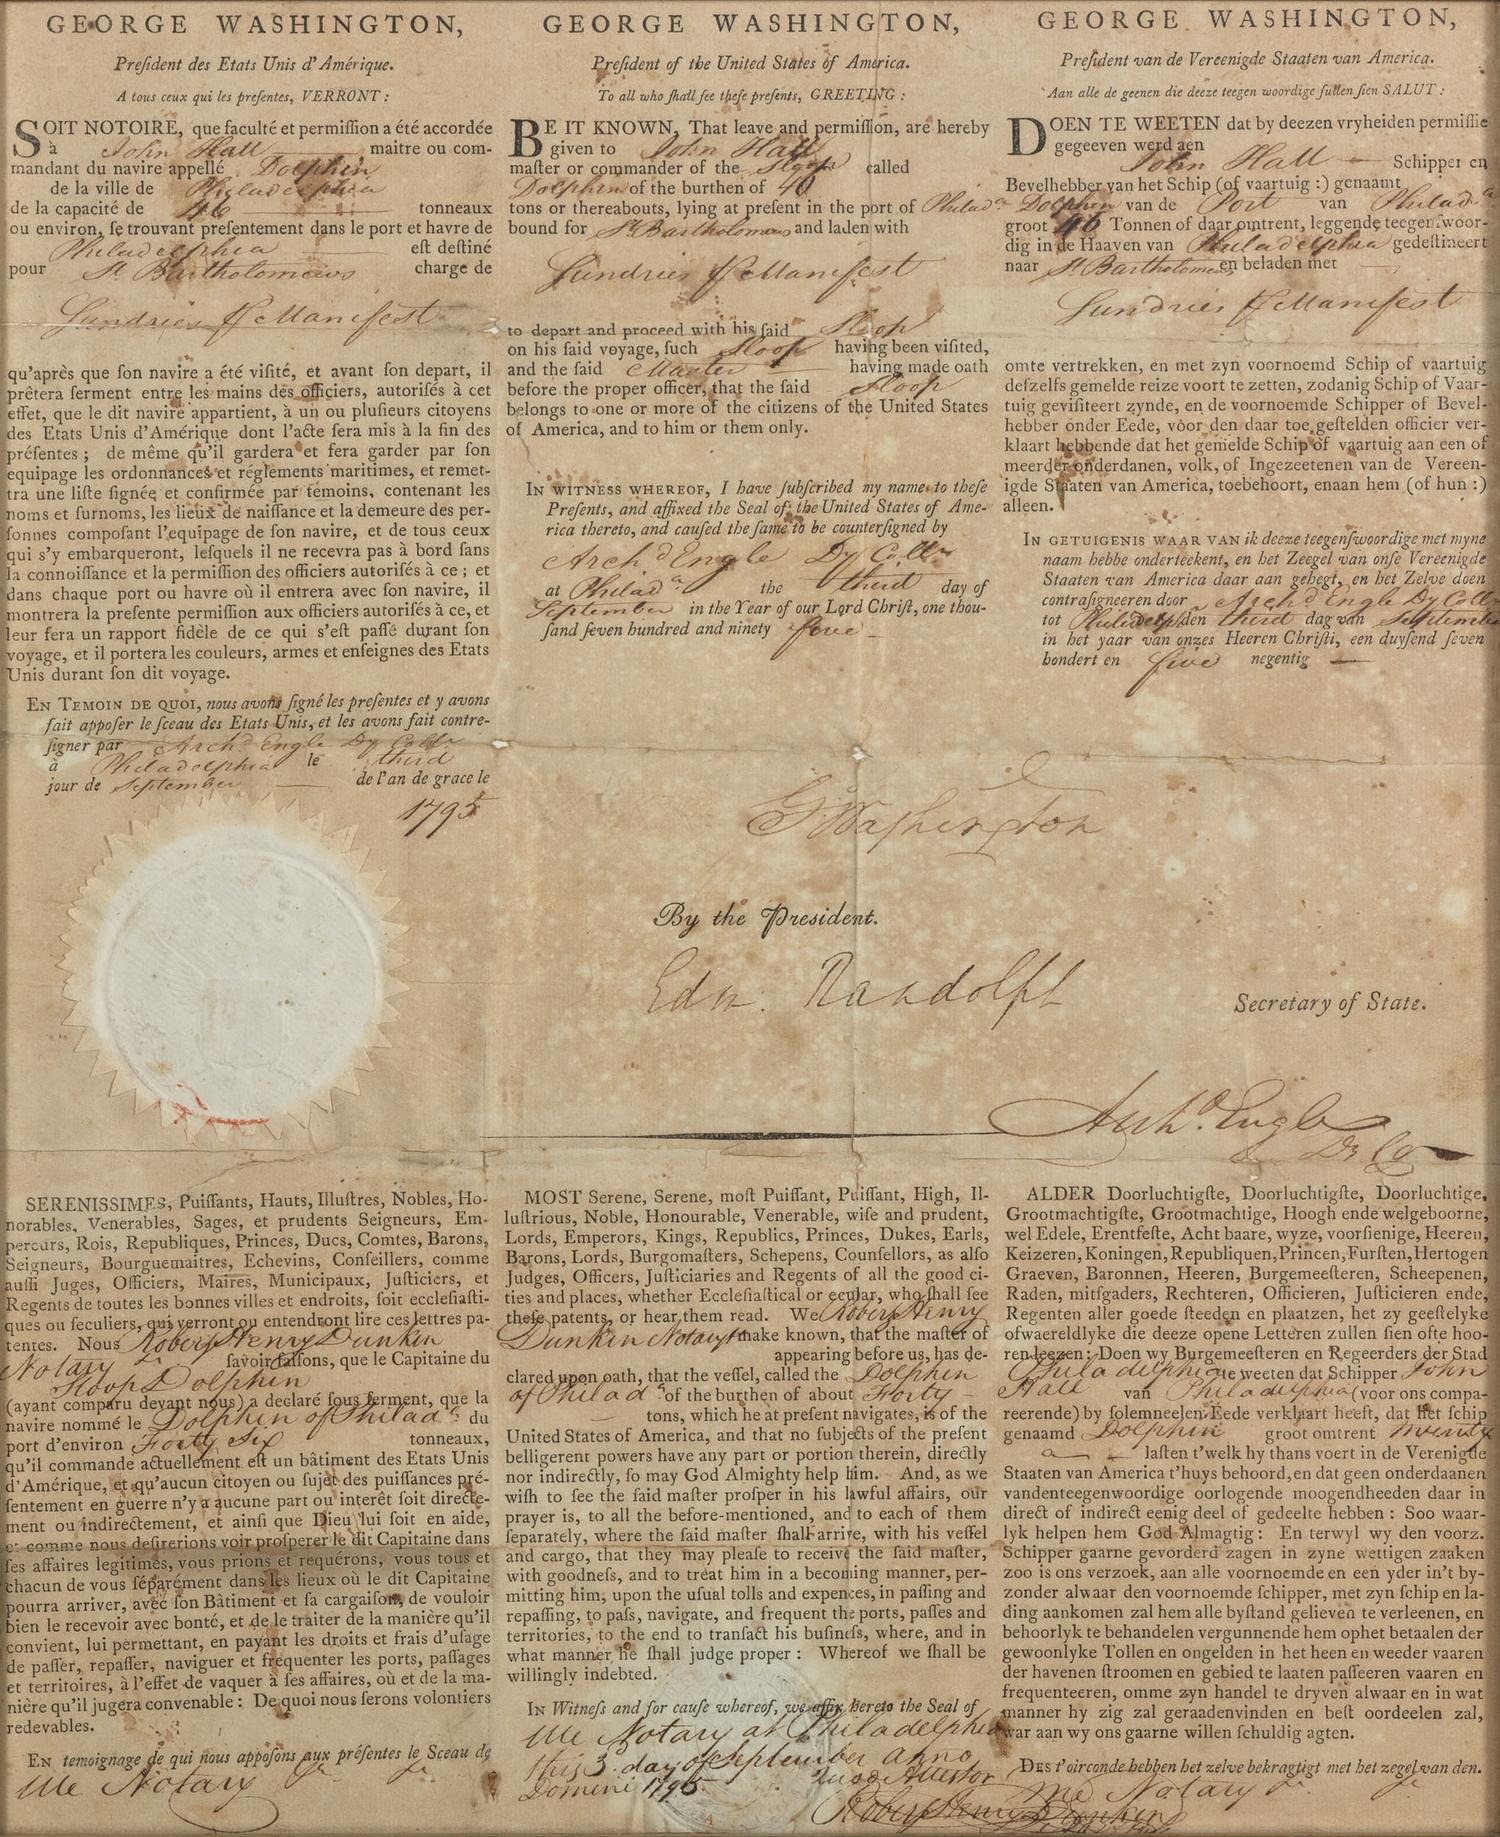 GEORGE WASHINGTON,
Preſident des Etats Unis d'Amérique.
A tous ceux qui les preſentes, VERRONT :
SOIT NOTOIRE, que faculté et permiſſion a été accordée
à John Hall maitre ou com-
mandant du navire appellé Dolphin
de la ville de Philadelphia
de la capacité de 46 tonneaux
ou environ, ſe trouvant preſentement dans le port et havre de
Philadelphia eſt deſtiné
pour St Bartholomews charge de
Sundries ℘ Manifest
qu'après que ſon navire a été viſité, et avant ſon depart, il
prêtera ſerment entre les mains des officiers, autoriſés à cet
effet, que le dit navire appartient, à un ou pluſieurs citoyens
des Etats Unis d'Amérique dont l'acte ſera mis à la fin des
préſentes ; de même qu'il gardera et fera garder par ſon
equipage les ordonnances et réglements maritimes, et remet-
tra une liſte ſignée et confirmée par témoins, contenant les
noms et ſurnoms, les lieux de naiſſance et la demeure des per-
ſonnes compoſant l'equipage de ſon navire, et de tous ceux
qui s'y embarqueront, leſquels il ne recevra pas à bord ſans
la connoiſſance et la permiſſion des officiers autoriſés à ce ; et
dans chaque port ou havre où il entrera avec ſon navire, il
montrera la preſente permiſſion aux officiers autoriſés à ce, et
leur fera un rapport fidèle de ce qui s'eſt paſſé durant ſon
voyage, et il portera les couleurs, armes et enſeignes des Etats
Unis durant ſon dit voyage.
EN TEMOIN DE QUOI, nous avons ſigné les preſentes et y avons
fait appoſer le ſceau des Etats Unis, et les avons fait contre-
ſigner par Archd Engle Dy Collr
à Philadelphia le third
jour de September de l'an de grace le
1795
GEORGE WASHINGTON,
Preſident of the United States of America.
To all who ſhall ſee theſe preſents, GREETING :
BE IT KNOWN, That leave and permiſſion, are hereby
given to John Hall
maſter or commander of the Sloop called
Dolphin of the burthen of 46
tons or thereabouts, lying at preſent in the port of Philada
bound for St Bartholomews and laden with
Sundries ℘ Manifest
to depart and proceed with his ſaid Sloop
on his ſaid voyage, ſuch Sloop having been viſited,
and the ſaid Master having made oath
before the proper officer, that the ſaid Sloop
belongs to one or more of the citizens of the United States
of America, and to him or them only.
IN WITNESS WHEREOF, I have ſubſcribed my name to theſe
Preſents, and affixed the Seal of the United States of Ame-
rica thereto, and cauſed the ſame to be counterſigned by
Archd Engle Dy Collr
at Philada the third day of
September in the Year of our Lord Chriſt, one thou-
ſand ſeven hundred and ninety five
GEORGE WASHINGTON,
Preſident van de Vereenigde Staaten van America.
Aan alle de geenen die deeze teegen woordige ſullen ſien SALUT :
DOEN TE WEETEN dat by deezen vryheiden permiſſie
gegeeven werd aen
John Hall Schipper en
Bevelhebber van het Schip (of vaartuig :) genaamt
Dolphin van de Port van Philada
groot 46 Tonnen of daar omtrent, leggende teegenſwoor-
dig in de Haaven van Philadelphia gedeſtineert
naar St Bartholomews en beladen met
Sundries ℘ Manifest
omte vertrekken, en met zyn voornoemd Schip of vaartuig
deſzelfs gemelde reize voort te zetten, zodanig Schip of Vaar-
tuig geviſiteert zynde, en de voornoemde Schipper of Bevel-
hebber onder Eede, vóor den daar toe geſtelden officier ver-
klaart hebbende dat het gemelde Schip of vaartuig aan een of
meerder onderdanen, volk, of Ingezeetenen van de Vereen-
igde Staaten van America, toebehoort, enaan hem (of hun :)
alleen.
IN GETUIGENIS WAAR VAN ik deeze teegenſwoordige met myne
naam hebbe onderteekent, en het Zeegel van onſe Vereenigde
Staaten van America daar aan gehegt, en het Zelve doen
contraſigneeren door Archd Engle Dy Collr
tot Philadelphia den third dag van September
in het yaar van onzes Heeren Chriſti, een duyſend ſeven
hondert en five negentig
G Washington
By the President.
Edm. Randolph
Secretary of State.
Archd. Engle
Dy Co
SERENISSIMES, Puiſſants, Hauts, Illuſtres, Nobles, Ho-
norables, Venerables, Sages, et prudents Seigneurs, Em-
pereurs, Rois, Republiques, Princes, Ducs, Comtes, Barons,
Seigneurs, Bourguemaitres, Echevins, Conſeillers, comme
auſſi Juges, Officiers, Maires, Municipaux, Juſticiers, et
Regents de toutes les bonnes villes et endroits, ſoit eccleſiaſti-
ques ou ſeculiers, qui verront ou entendront lire ces lettres pa-
tentes. Nous Robert Henry Dunkin
Notary ſavoir faiſons, que le Capitaine du
Sloop Dolphin
(ayant comparu devant nous) a declaré ſous ſerment, que la
navire nommé le Dolphin of Philada du
port d'environ Forty Six tonneaux,
qu'il commande actuellement eſt un bâtiment des Etats Unis
d'Amérique, et qu'aucun citoyen ou ſujet des puiſſances pré-
ſentement en guerre n'y a aucune part ou interêt ſoit directe-
ment ou indirectement, et ainſi que Dieu lui ſoit en aide,
et comme nous deſirerions voir proſperer le dit Capitaine dans
ſes affaires legitimes, vous prions et requérons, vous tous et
chacun de vous ſéparément dans les lieux où le dit Capitaine
pourra arriver, avec ſon Bâtiment et ſa cargaiſon, de vouloir
bien le recevoir avec bonté, et de le traiter de la manière qu'il
convient, lui permettant, en payant les droits et frais d'uſage
de paſſer, repaſſer, naviguer et fréquenter les ports, paſſages
et territoires, à l'effet de vaquer à ſes affaires, où et de la ma-
nière qu'il jugera convenable : De quoi nous ſerons volontiers
redevables.
EN temoignage de qui nous appoſons aux préſentes le Sceau de
Me Notary
MOST Serene, Serene, moſt Puiſſant, Puiſſant, High, Il-
luſtrious, Noble, Honourable, Venerable, wiſe and prudent,
Lords, Emperors, Kings, Republics, Princes, Dukes, Earls,
Barons, Lords, Burgomaſters, Schepens, Counſellors, as alſo
Judges, Officers, Juſticiaries and Regents of all the good ci-
ties and places, whether Eccleſiaſtical or ecular, who ſhall ſee
theſe patents, or hear them read. We Robert Henry
Dunkin Notary make known, that the maſter of
appearing before us, has de-
clared upon oath, that the veſſel, called the Dolphin
of Philada of the burthen of about Forty
tons, which he at preſent navigates, is of the
United States of America, and that no ſubjects of the preſent
belligerent powers have any part or portion therein, directly
nor indirectly, ſo may God Almighty help him. And, as we
wiſh to ſee the ſaid maſter proſper in his lawful affairs, our
prayer is, to all the before-mentioned, and to each of them
ſeparately, where the ſaid maſter ſhall arrive, with his veſſel
and cargo, that they may pleaſe to receive the ſaid maſter,
with goodneſs, and to treat him in a becoming manner, per-
mitting him, upon the uſual tolls and expences, in paſſing and
repaſſing, to paſs, navigate, and frequent the ports, paſſes and
territories, to the end to tranſact his buſineſs, where, and in
what manner he ſhall judge proper : Whereof we ſhall be
willingly indebted.
IN Witneſs and for cauſe whereof, we affix hereto the Seal of
Me Notary at Philadelphia
this 3 day of September anno
Domini 1795
Quod Attestor
Robert Henry Dunkin
ALDER Doorluchtigſte, Doorluchtigſte, Doorluchtige,
Grootmachtigſte, Grootmachtige, Hoogh ende welgeboorne,
wel Edele, Erentfeſte, Acht baare, wyze, voorſienige, Heeren,
Keizeren, Koningen, Republiquen, Princen, Furſten, Hertogen
Graeven, Baronnen, Heeren, Burgemeeſteren, Scheepenen,
Raden, mitſgaders, Rechteren, Officieren, Juſticieren ende,
Regenten aller goede ſteeden en plaatzen, het zy geeſtelyke
ofwaereldlyke die deeze opene Letteren zullen ſien ofte hoo-
ren leezen : Doen wy Burgemeeſteren en Regeerders der Stad
Philadelphia te weeten dat Schipper John
Hall van Philadelphia (voor ons compa-
reerende) by ſolemneelen Eede verklaart heeft, dat het ſchip
genaamd Dolphin groot omtrent
laſten t'welk hy thans voert in de Verenigde
Staaten van America t'huys behoord, en dat geen onderdaanen
vandenteegenwoordige oorlogende moogendheeden daar in
direct of indirect eenig deel of gedeelte hebben : Soo waar-
lyk helpen hem God Almagtig : En terwyl wy den voorz.
Schipper gaarne gevorderd zagen in zyne wettigen zaaken
zoo is ons verzoek, aan alle voornoemde en een yder in't by-
zonder alwaar den voornoemde ſchipper, met zyn ſchip en la-
ding aankomen zal hem alle byſtand gelieven te verleenen, en
behoorlyk te behandelen vergunnende hem ophet betaalen der
gewoonlyke Tollen en ongelden in het heen en weeder vaaren
der havenen ſtroomen en gebied te laaten paſſeeren vaaren en
frequenteeren, omme zyn handel te dryven alwaar en in wat
manner hy zig zal geraadenvinden en beſt oordeelen zal,
war aan wy ons gaarne willen ſchuldig agten.
DES t'oirconde hebben het zelve bekragtigt met het zegel van den.
me Notary